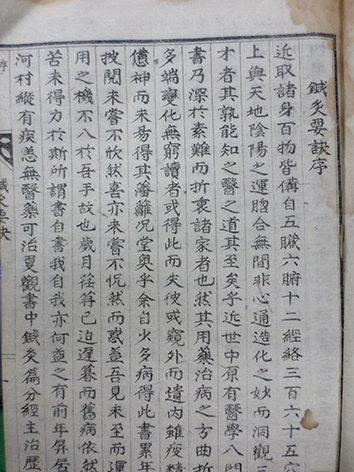 鍼灸要訣序
近取諸身百物皆備自五臟六腑十二經絡三百六十五
上與天地陰陽之運脗合無間非心通造化之妙而洞觀
才者其孰能知之醫之道其至矣乎近世中原有醫學入門
書乃深於素難而折衷諸家者也然其用藥治病之方曲折
多端變化無窮讀者或得此而失彼或窺外而遺內雖疲精
憊神而未易得其藩籬况堂奧乎余自少多病得此書累年
披閱未嘗不欣然喜亦未嘗不怳然而惑盖吾見未至而運
用之機不入於吾手故也歲月荏苒已迫遲暮而舊病依然
苦未得力於斯所謂書自書我自我亦何益之有前年屏居
河村縱有疾恙無醫藥可治夏觀書中鍼灸篇分經主治歷
序
鍼灸要訣
一